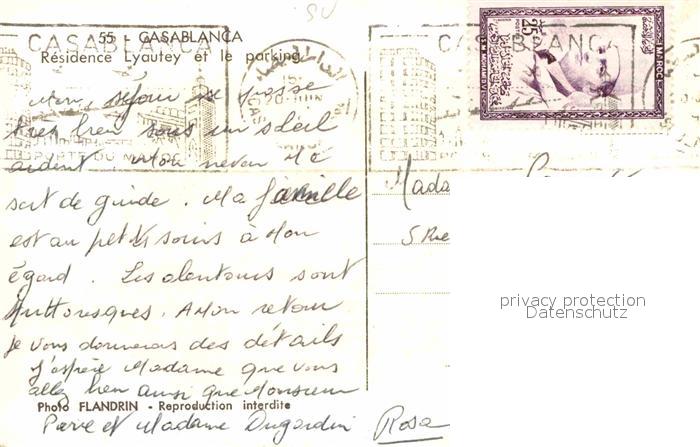 SU
55 - CASABLANCA
Résidence Lyautey et le parking
Mon séjour se passe
très bien sous un soleil
ardent. Mon neveu me
sert de guide. Ma famille
est au petits soins à mon
égard. Les alentours sont
pittoresques. A mon retour
je vous donnerais des détails
J'espère Madame que vous
allez bien ainsi que Monsieur
Photo FLANDRIN - Reproduction interdite
Pierre et Madame Dugardin Rosa
CASABLANCA
PORTE DU
CASABLANCA
20 JUIN
25F
POSTES
MAROC
S.M. MOHAMMED V
Mada
5 Rue
privacy protection
Datenschutz